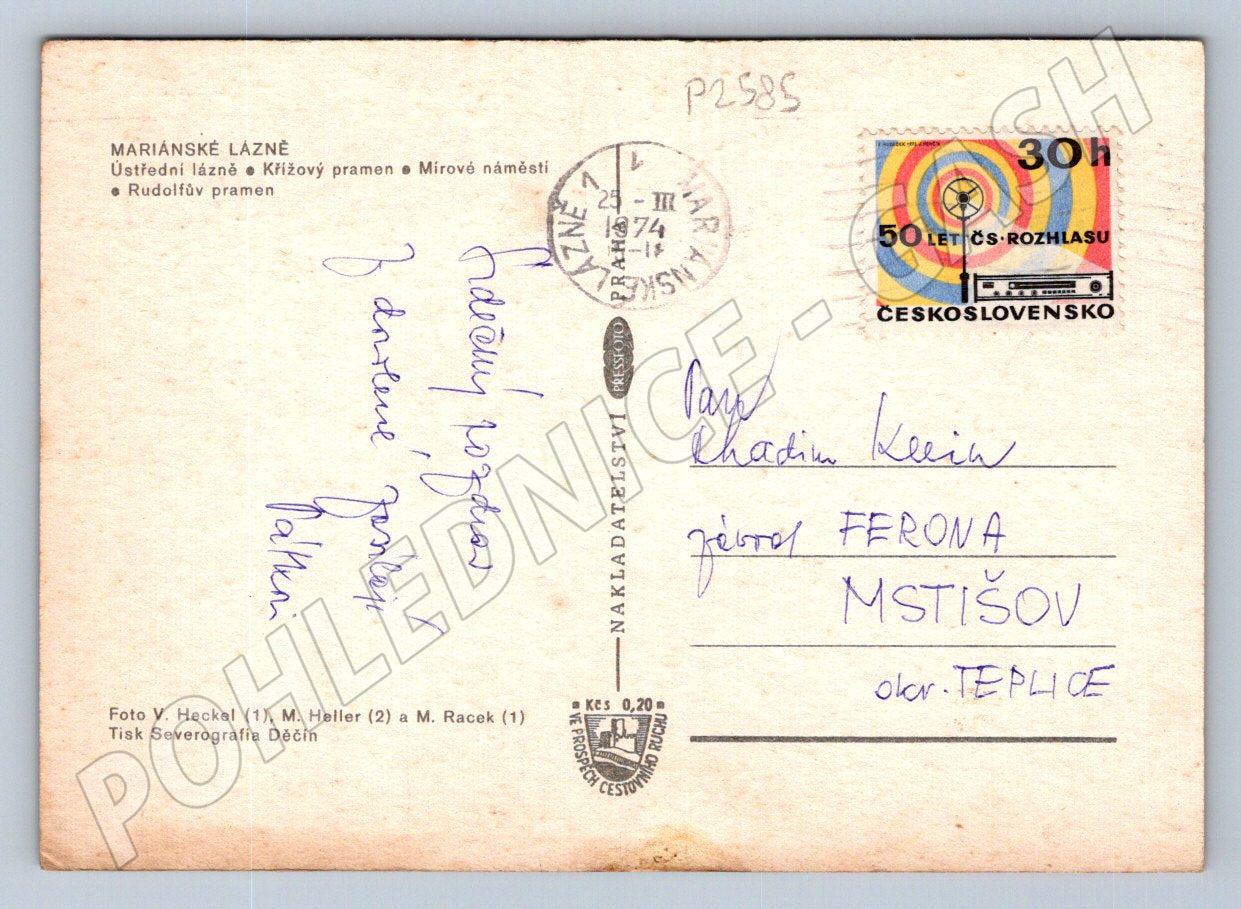 P2585
MARIÁNSKÉ LÁZNĚ
Ústřední lázně • Křížový pramen • Mírové náměstí
• Rudolfův pramen
MARIÁNSKÉ LÁZNĚ 1
25 -III
1974
30 h
50 LET ČS·ROZHLASU
ČESKOSLOVENSKO
Srdečný pozdrav
z dovolené, zasílají
Pátkovi
NAKLADATELSTVÍ PRESSFOTO PRAHA
závod FERONA
MSTIŠOV
okr. TEPLICE
Foto V. Heckel (1), M. Heller (2) a M. Racek (1)
Tisk Severografia Děčín
Kčs 0,20
VE PROSPĚCH CESTOVNÍHO RUCHU
POHLEDNICE - CASH